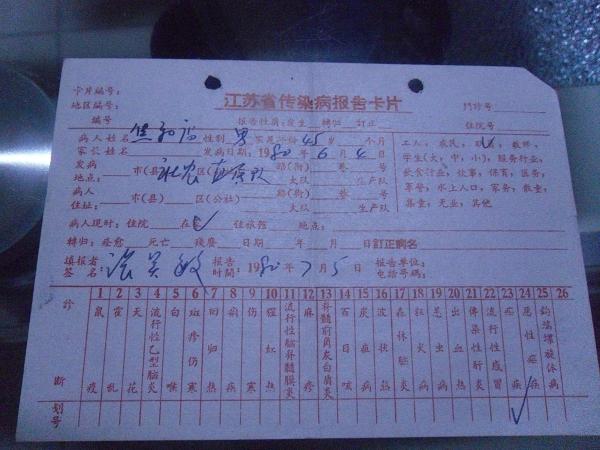 江苏省传染病报告卡片
卡片编号：
地区编号：
门诊号
编号 报告性质：发生 转归 订正 住院号
病人姓名 性别 男 实足年令 45 岁 个月
家长姓名 发病日期：1980年6月4日
发病 市(县) 区(公社) 路(街) 巷 号
地点： 大队 生产队
病人 市(县) 区(公社) 路(街) 巷 号
住址： 大队 生产队
工人，农民，教师，
学生(大，中，小)，服务行业，
饮食行业，炊事，保育，医务，
牧工，水上人口，家务，散童，
集童，无业，其他
病人现时：住院 在家 住旅馆 地点：
转归：痊愈 死亡 残废 日期 年 月 日订正病名
填报者 报告 报告单位：
签名： 时间：1980年7月5日 电话号码：
诊断
1 鼠疫
2 霍乱
3 天花
4 流行性乙型脑炎
5 白喉
6 斑疹伤寒
7 回归热
8 痢疾
9 伤寒
10 猩红热
11 流行性脑脊髓膜炎
12 麻疹
13 脊髓前角灰白质炎
14 百日咳
15 炭疽病
16 波状热
17 森林脑炎
18 狂犬病
19 恙虫病
20 出血热
21 传染性肝炎
22 流行性感冒
23 疟疾
24 恶性疟疾
25 钩端螺旋体病
26
划号 ✓